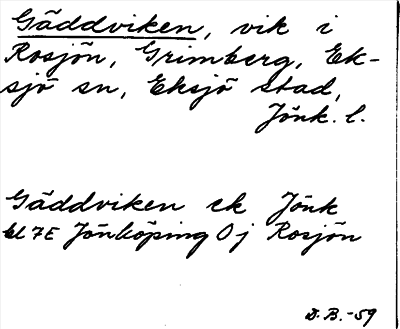 Gäddviken, vik i
Rosjön, Grimberg, Ek-
sjö sn, Eksjö stad,
Jönk. l.
Gäddviken ek Jönk
bl 7E Jönköping O j Rosjön
D.B.-59